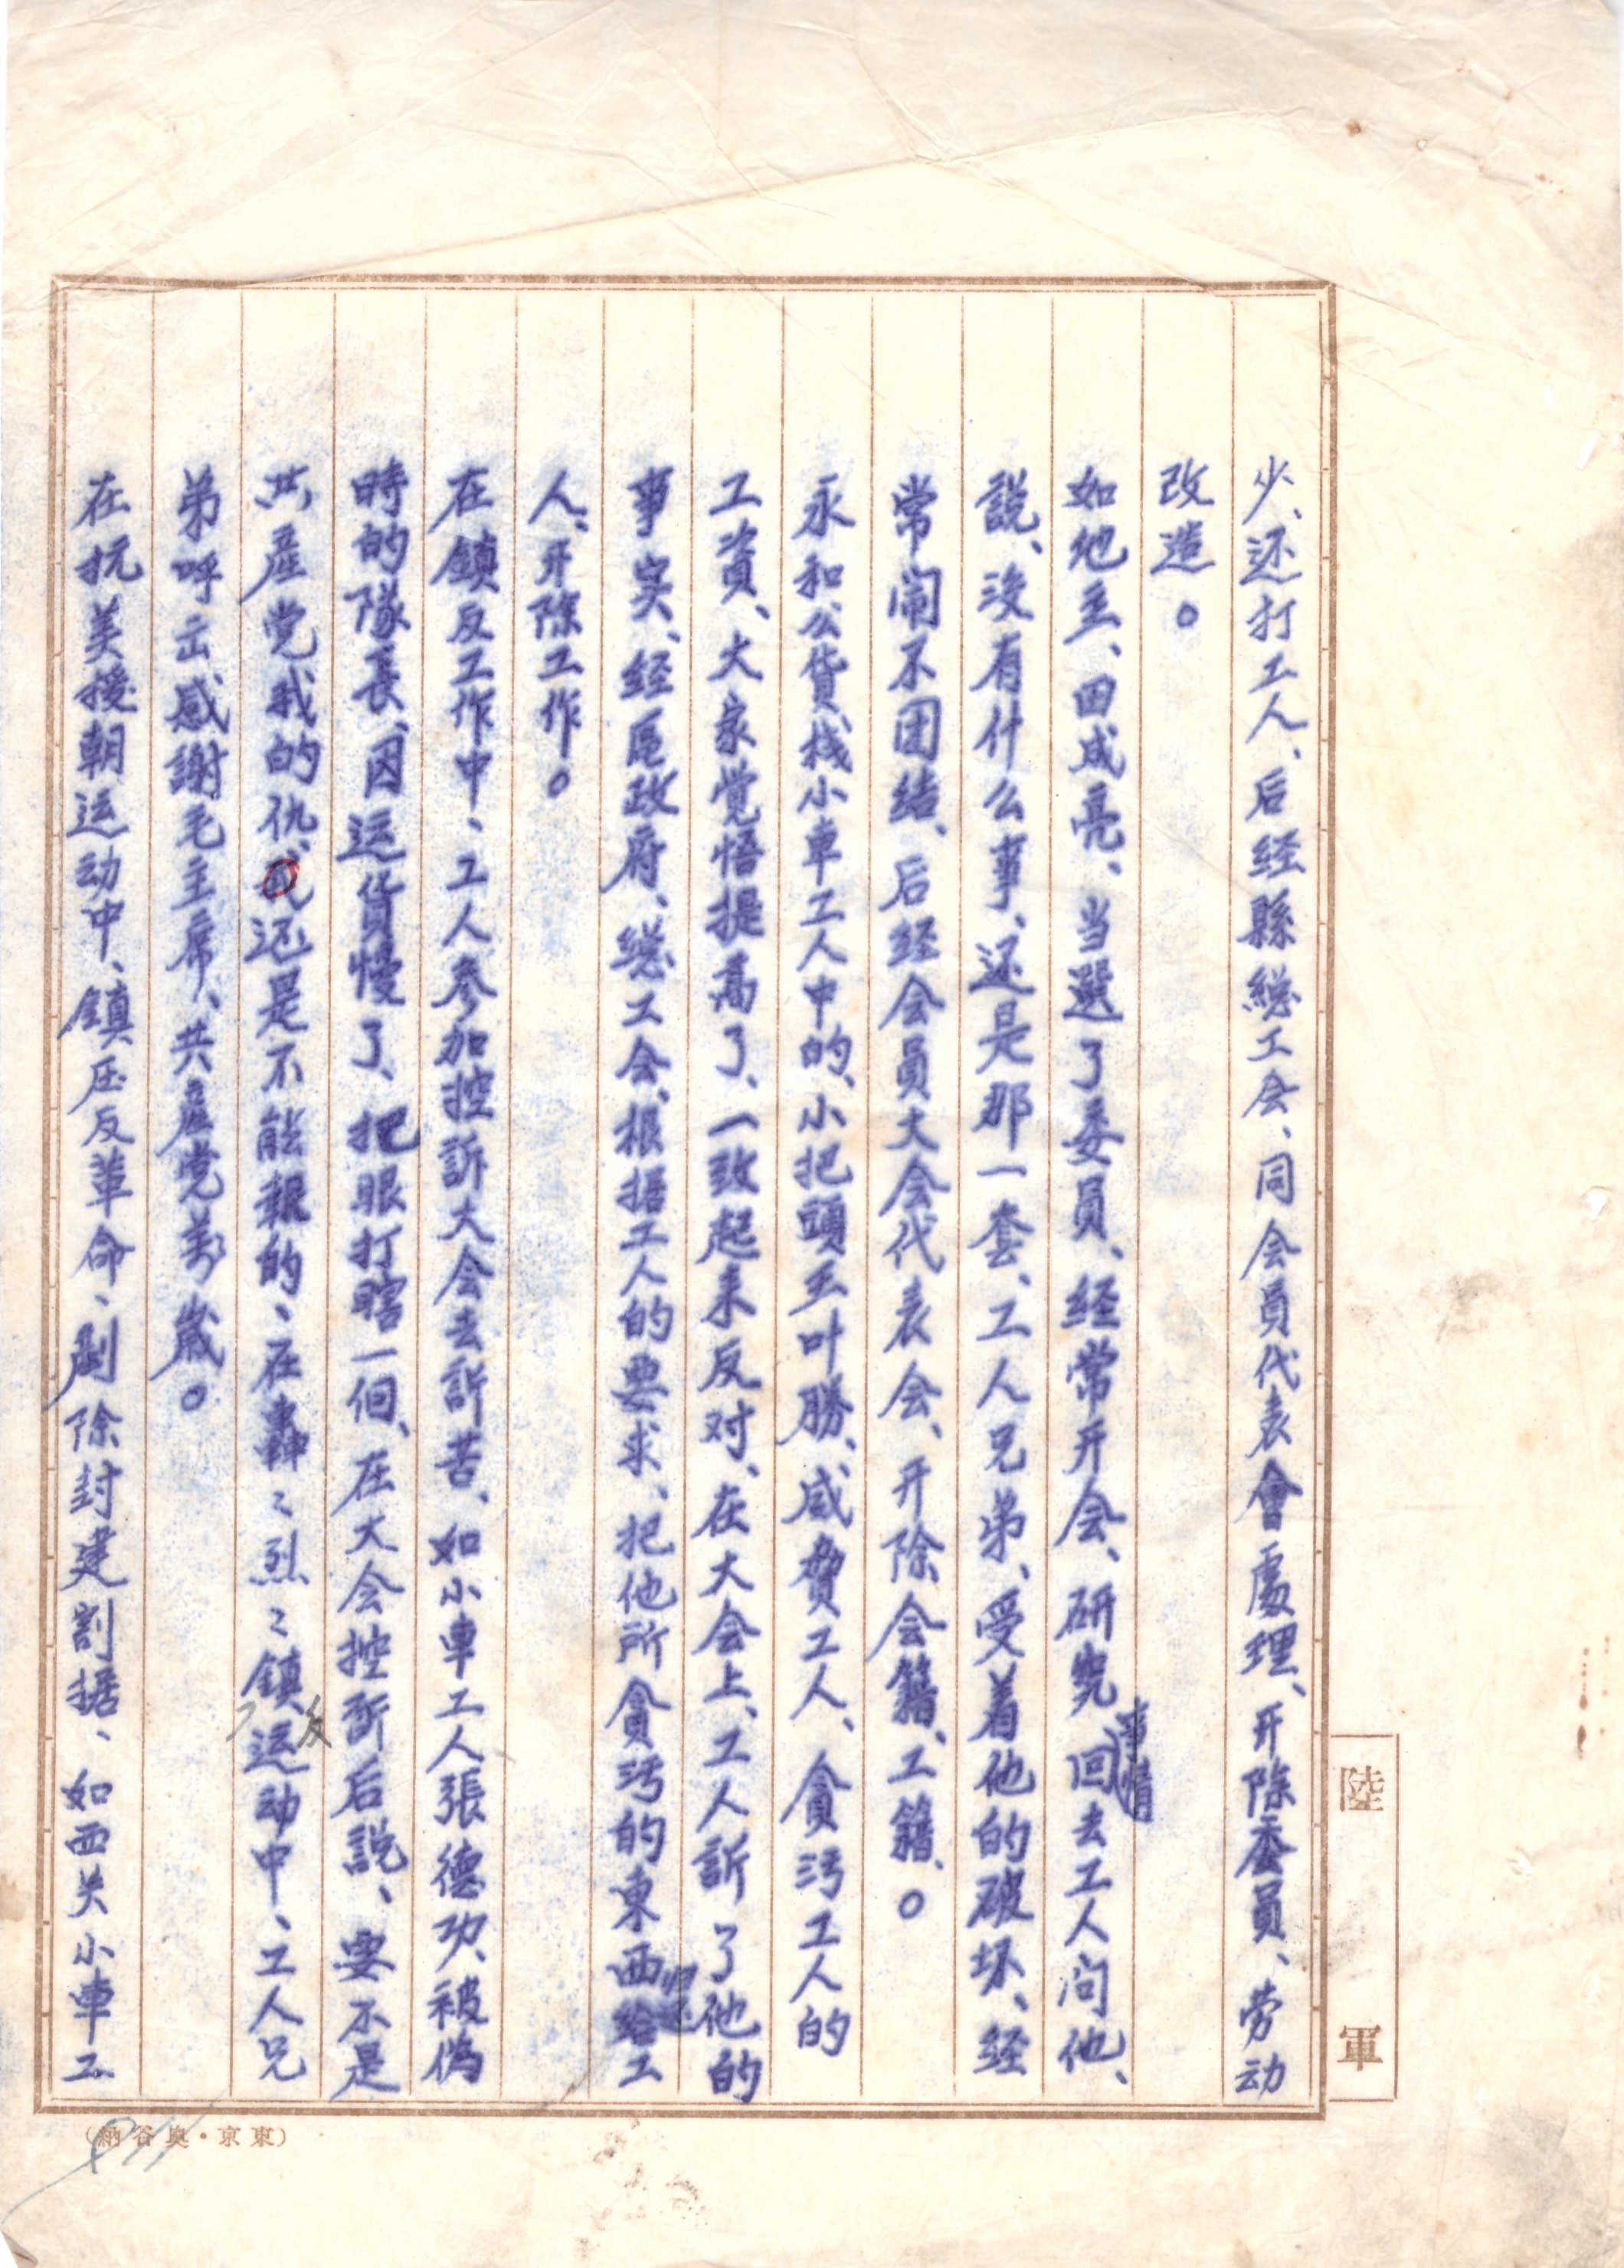 少、还打工人、后经縣總工会、同会員代表會處理、开除委員、劳动
改造。
如纪主、田成亮、当選了委員、经常开会、研究事情回去工人问他、
說、没有什么事、还是那一套、工人兄弟、受着他的破坏、经
常闹不团结、后经会員大会代表会、开除会籍、工籍、。
永和公貨栈小車工人中的、小把頭王叶勝、威脅工人、貪污工人的
工資、大家觉悟提高了、一致起来反对、在大会上、工人訴了他的
事实、经區政府、總工会、根据工人的要求、把他所貪污的東西归还給工
人、开除工作。
在鎮反工作中、工人参加控訴大会去訴苦、如小車工人張德功、被偽
時的隊長、因运貨慢了、把眼打瞎一個、在大会控訴后說、要不是
共產党我的仇、我还是不能報的、在轟々烈々鎮反运动中、工人兄
弟呼出感謝毛主席、共產党萬歲。
在抗美援朝运动中、鎮压反革命、剷除封建割据、如西关小車工
陸軍
(東京・奥谷納)